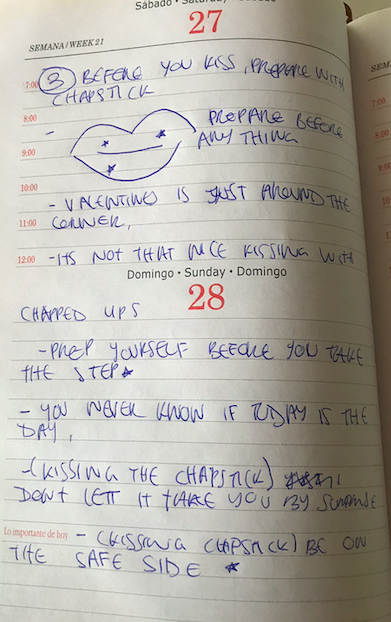 Sábado • Saturday
27
SEMANA/WEEK 21
7:00 ③ BEFORE YOU KISS, PREPARE WITH
CHAPSTICK
8:00
PREPARE BEFORE
ANYTHING
9:00
10:00
- VALENTINES IS JUST AROUND THE
11:00 CORNER,
12:00 - ITS NOT THAT NICE KISSING WITH
Domingo • Sunday • Domingo
28
CHAPPED LIPS
- PREP YOURSELF BEFORE YOU TAKE
THE STEP
- YOU NEVER KNOW IF TODAY IS THE
DAY,
- (KISSING THE CHAPSTICK)
DONT LETT IT TAKE YOU BY SURPRISE
Lo importante de hoy - (KISSING CHAPSTICK) BE ON
THE SAFE SIDE
SEM